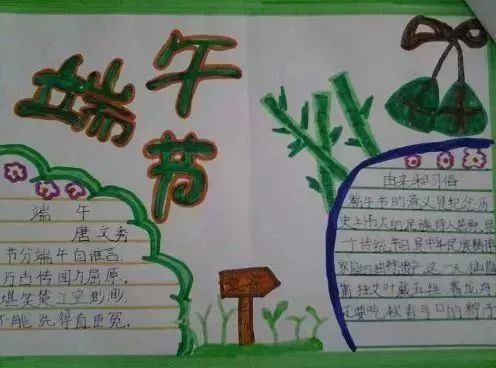 端午节
端 午
唐 文秀
节分端午自谁言,
万古传因为屈原.
堪笑楚江空渺渺,
不能洗得直臣冤.
由来和习俗
端午节的意义是纪念历
史上伟大的民族诗人屈原,是
一个传统节日是中华民族精神
家园的独特 这一天
插艾叶戴五丝 赛龙舟
还要吃 可口的粽子